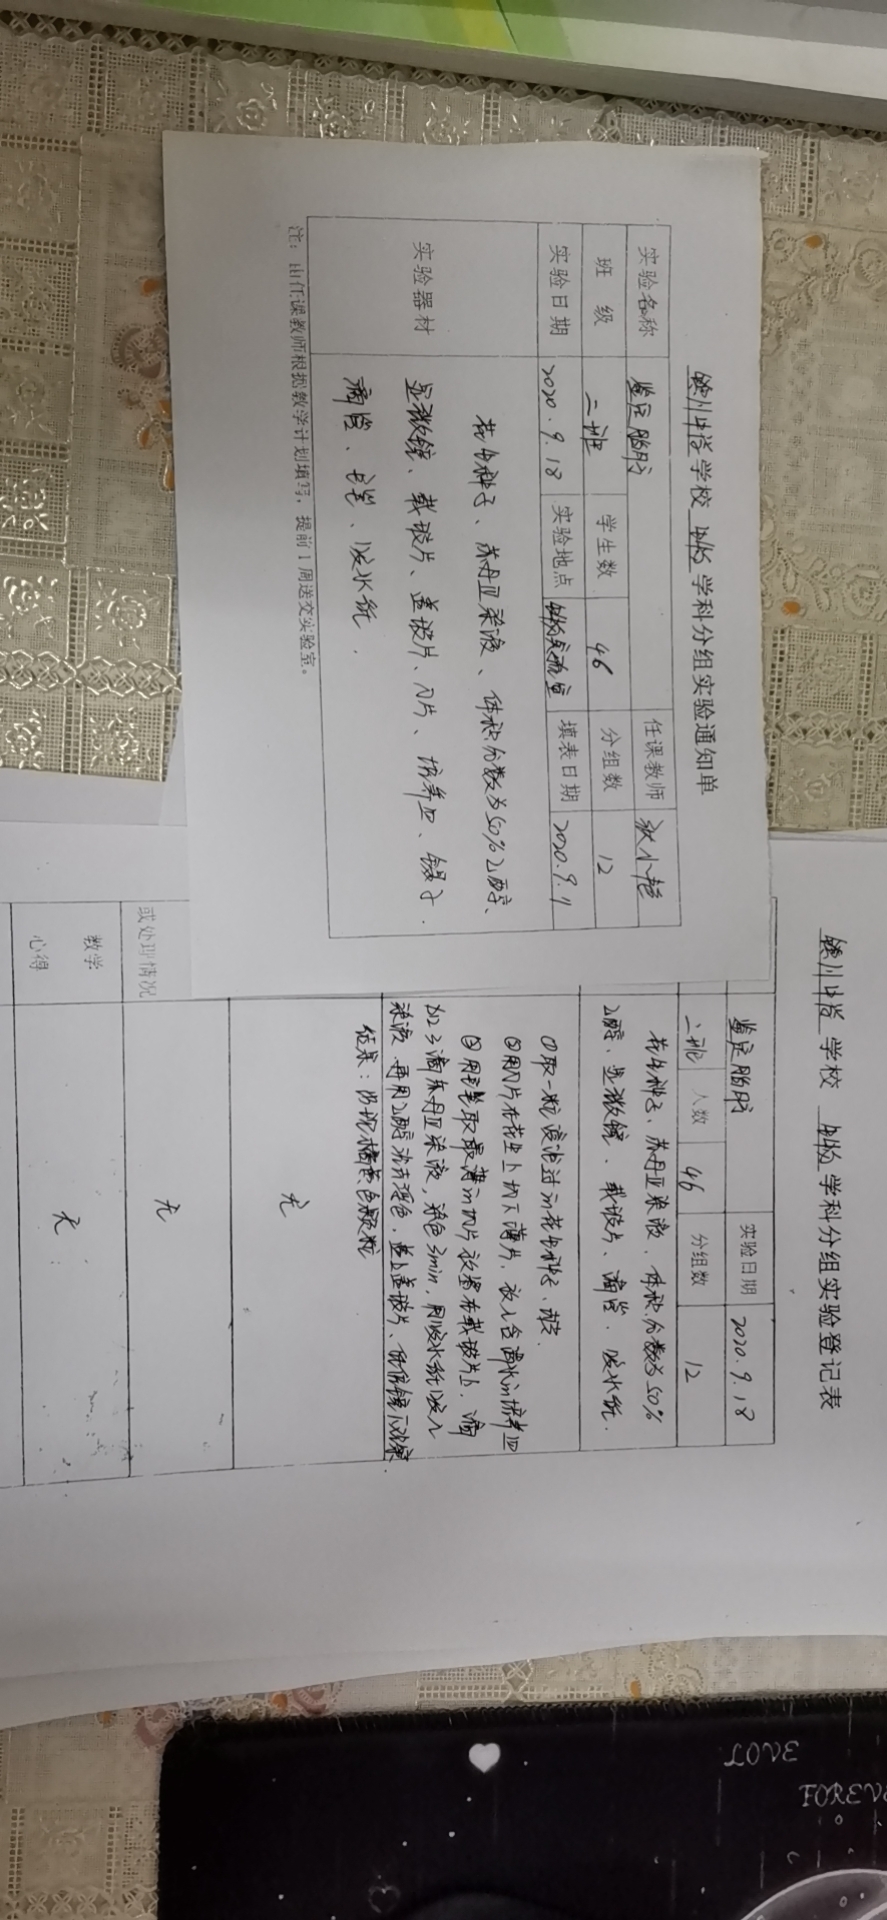 银川中学 学校 生物 学科分组实验通知单
实验名称 鉴定脂肪 任课教师
班 级 二班 学生数 46 分组数 12
实验日期 2020.9.18 实验地点 生物实验室 填表日期 2020.9.11
实验器材
花生种子、苏丹Ⅲ染液、体积分数为50%乙醇、
显微镜、载玻片、盖玻片、刀片、培养皿、镊子.
滴管、毛笔、吸水纸.
注：由任课教师根据教学计划填写，提前1周送交实验室。
银川中学 学校 生物 学科分组实验登记表
鉴定脂肪 实验日期 2020.9.18
二班 人数 46 分组数 12
花生种子、苏丹Ⅲ染液、体积分数为50%
乙醇、显微镜、载玻片、滴管、吸水纸.
①取一粒浸泡过的花生种子、去皮.
②用刀片在花生上切下薄片，放入含清水的培养皿
③用毛笔取最薄的切片放置在载玻片上，滴
加2~3滴苏丹Ⅲ染液，染色3min，用吸水纸吸去
染液，再用乙醇洗去浮色，盖上盖玻片、低倍镜下观察
结果：出现橘黄色颗粒
无
或处理情况 无
教学
心得
无
LOVE
FOREV